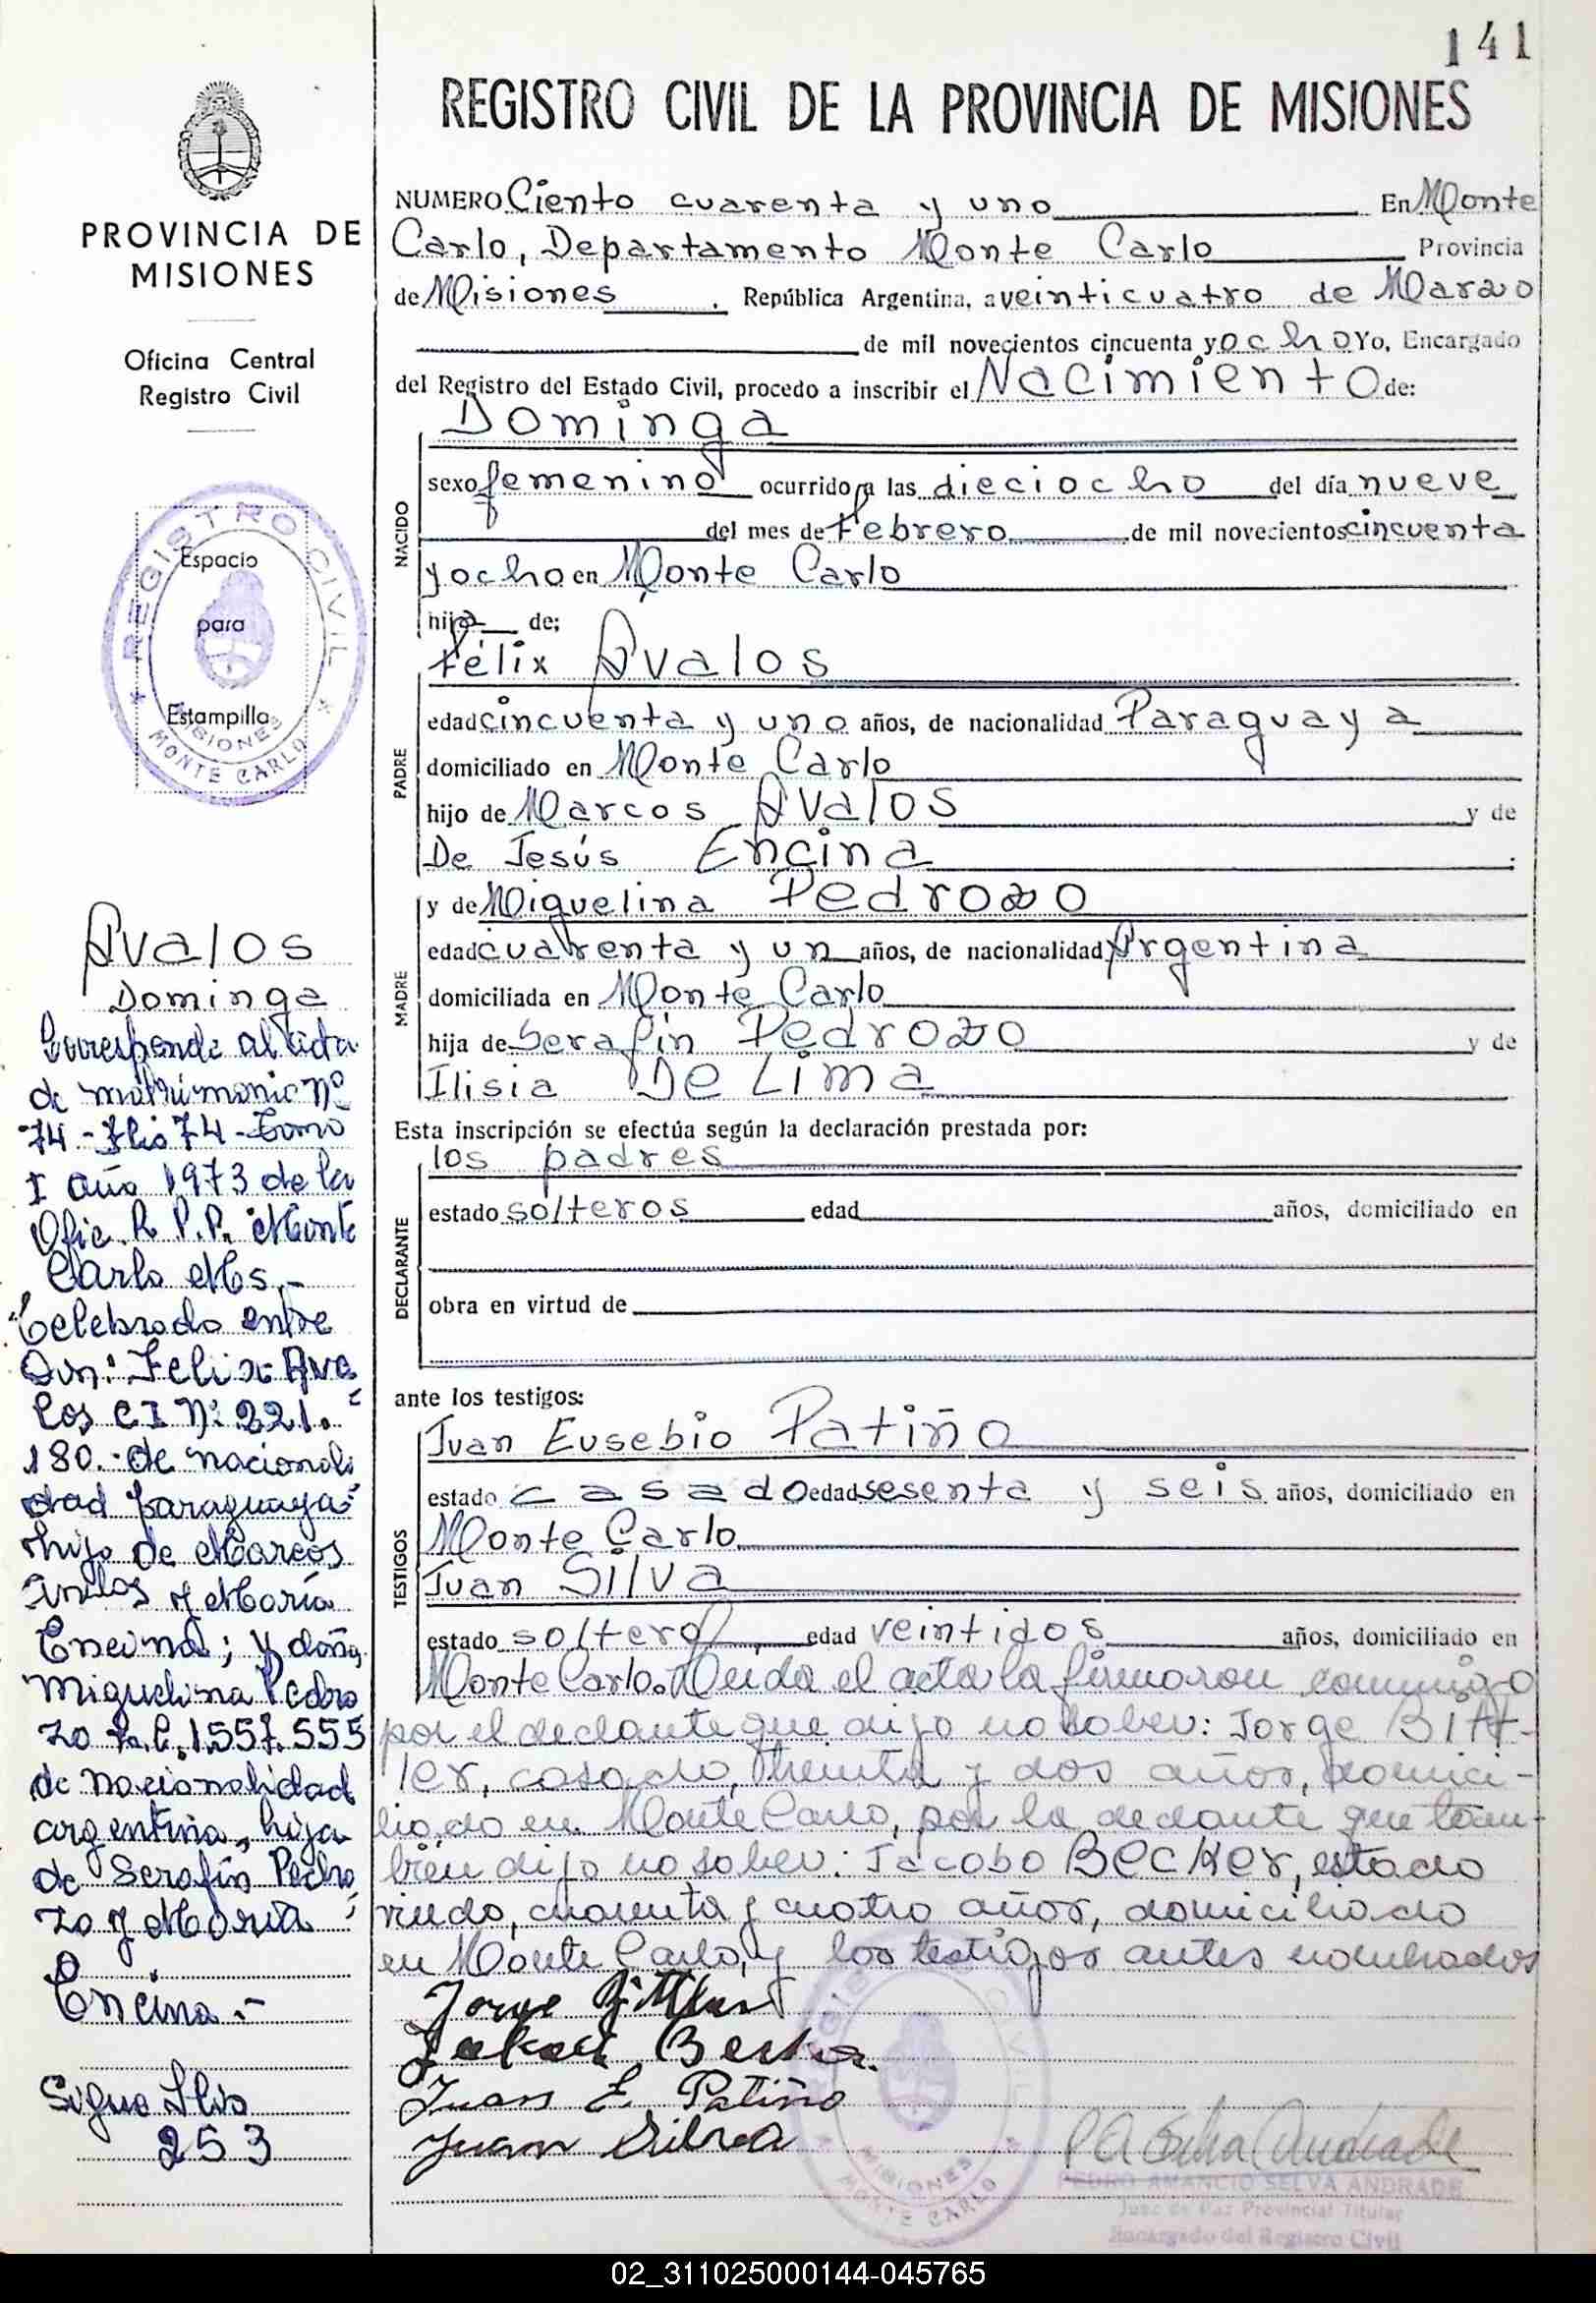 141
REGISTRO CIVIL DE LA PROVINCIA DE MISIONES
PROVINCIA DE
MISIONES
Oficina Central
Registro Civil
REGISTRO CIVIL
Espacio
para
Estampilla
MISIONES
MONTE CARLO
Avalos
Dominga
Corresponde al acta
de matrimonio Nº
74 - Flio 74 - Tomo
I año 1973 de la
Ofic. R. P.P. Monte
Carlo Ms.-
Celebrado entre
Don: Felix Ava
los CI Nº 221.
180.- de nacionali
dad paraguaya
hijo de Marcos
Avalos y María
Encina; y doña
Miguelina Pedro
zo L.C. 1.557.555
de nacionalidad
argentina, hija
de Serafín Pedro
zo y María
Encina.-
Sigue Flio
253
NUMERO Ciento cuarenta y uno En Monte
Carlo, Departamento Monte Carlo Provincia
de Misiones, República Argentina, a veinticuatro de Marzo
de mil novecientos cincuenta y ocho Yo, Encargado
del Registro del Estado Civil, procedo a inscribir el Nacimiento de:
NACIDO
Dominga
sexo femenino ocurrido a las dieciocho del día nueve
del mes de Febrero de mil novecientos cincuenta
y ocho en Monte Carlo
hija de:
PADRE
Félix Avalos
edad cincuenta y uno años, de nacionalidad Paraguaya
domiciliado en Monte Carlo
hijo de Marcos Avalos y de
De Jesús Encina
MADRE
y de Miguelina Pedrozo
edad cuarenta y un años, de nacionalidad Argentina
domiciliada en Monte Carlo
hija de Serafín Pedrozo y de
Ilisia De Lima
Esta inscripción se efectúa según la declaración prestada por:
DECLARANTE
los padres
estado solteros edad años, domiciliado en
obra en virtud de
ante los testigos:
TESTIGOS
Juan Eusebio Patiño
estado casado edad sesenta y seis años, domiciliado en
Monte Carlo
Juan Silva
estado soltero, edad veintidos años, domiciliado en
Monte Carlo. Leida el acta la firmaron conmigo
por el declante que dijo no saber: Jorge Bitt-
ler, casado, treinta y dos años, domici-
liado en Monte Carlo, por la declante que tam-
bién dijo no saber: Jacobo Becker, estado
viudo, cuarenta y cuatro años, domiciliado
en Monte Carlo, y los testigos antes nombrados
Jorge Bittler
Juan E. Patiño
Juan Silva
REGISTRO CIVIL
MISIONES
MONTE CARLO
PEDRO AMANCIO SELVA ANDRADE
Juez de Paz Provincial Titular
Encargado del Registro Civil
02_311025000144-045765